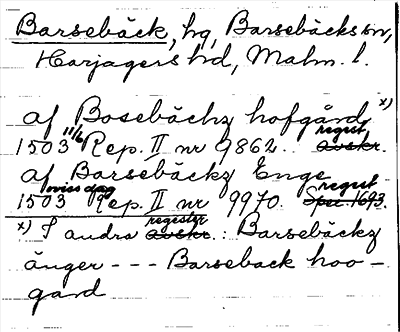 Barsebäck, hg, Barsebäcks sn,
Harjagers hd, Malm. l.
af Bosebächz hofgård x)
1503 11/6 Rep. II nr 9862. avskr. regest
af Barsebäckz Enge
1503 viss dag Rep. II nr 9970. Spec. 1693. regest
x) I andra avskr. regester : Barsebäckz
änger - - - Barseback hoo -
gard